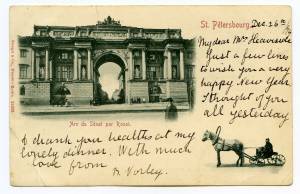 St. Pétersbourg. Dec. 26th
My dear Mrs Heaviside
Just a few lines
to wish you a very
happy New Year
I thought of you
all yesterday
Arc du Sénat par Rossi.
& drank your healths at my
lonely dinner. With much
love from
A. Vorley.